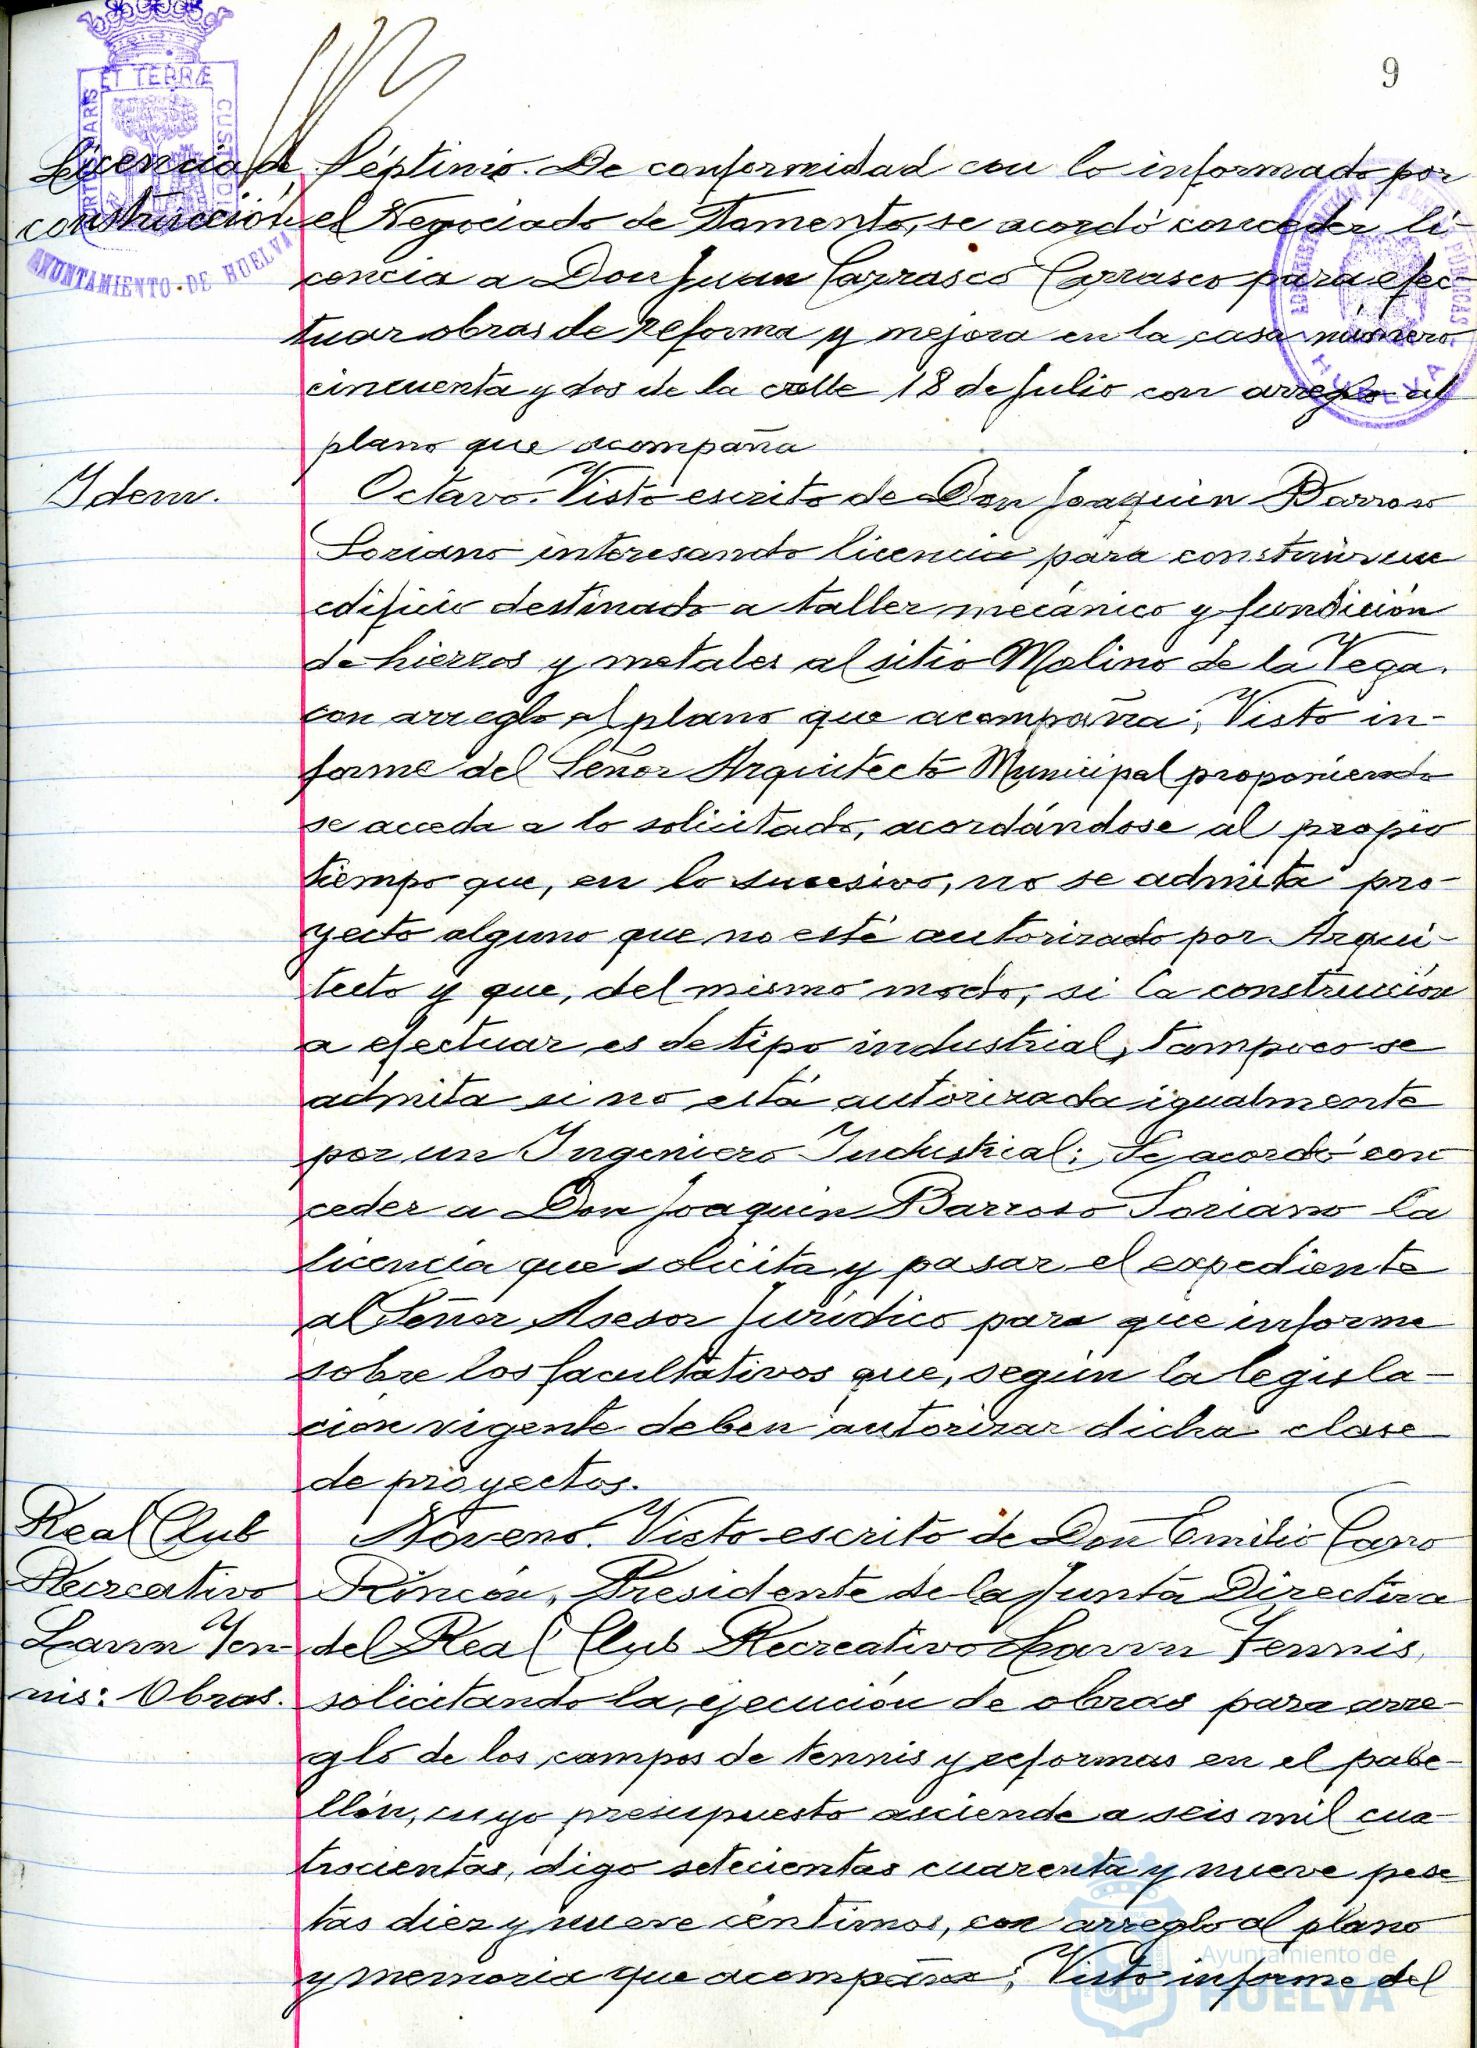 9
ET TERRÆ
PORTUS MARIS
CUSTODIA
AYUNTAMIENTO DE HUELVA
HUELVA
Licencia de
construcción
Séptimo. De conformidad con lo informado por
el Negociado de Fomento, se acordó conceder li-
cencia a Don Juan Carrasco Carrasco para efec-
tuar obras de reforma y mejora en la casa número
cincuenta y dos de la calle 18 de Julio con arreglo al
plano que acompaña
Idem.
Octavo. Visto escrito de Don Joaquin Barroso
Soriano interesando licencia para construir un
edificio destinado a taller mecánico y fundición
de hierros y metales al sitio Molino de la Vega.
con arreglo al plano que acompaña; Visto in-
forme del Señor Arquitecto Municipal proponiendo
se acceda a lo solicitado, acordándose al propio
tiempo que, en lo sucesivo, no se admita pro-
yecto alguno que no esté autorizado por Arqui-
tecto y que, del mismo modo, si la construcción
a efectuar es de tipo industrial, tampoco se
admita si no está autorizada igualmente
por un Ingeniero Industrial; Se acordó con
ceder a Don Joaquin Barroso Soriano la
licencia que solicita y pasar el expediente
al Señor Asesor Jurídico para que informe
sobre los facultativos que, según la legisla-
ción vigente deben autorizar dicha clase
de proyectos.
Real Club
Recreativo
Lawn Ten-
nis: Obras.
Noveno. Visto escrito de Don Emilio Cano
Rincón, Presidente de la Junta Directiva
del Real Club Recreativo Lawn Tennis,
solicitando la ejecución de obras para arre-
glo de los campos de tennis y reformas en el pabe-
llón, cuyo presupuesto asciende a seis mil cua-
trocientas, digo setecientas cuarenta y nueve pese
tas diez y nueve céntimos, con arreglo al plano
y memoria que acompaña; Visto informe del
Ayuntamiento de
HUELVA